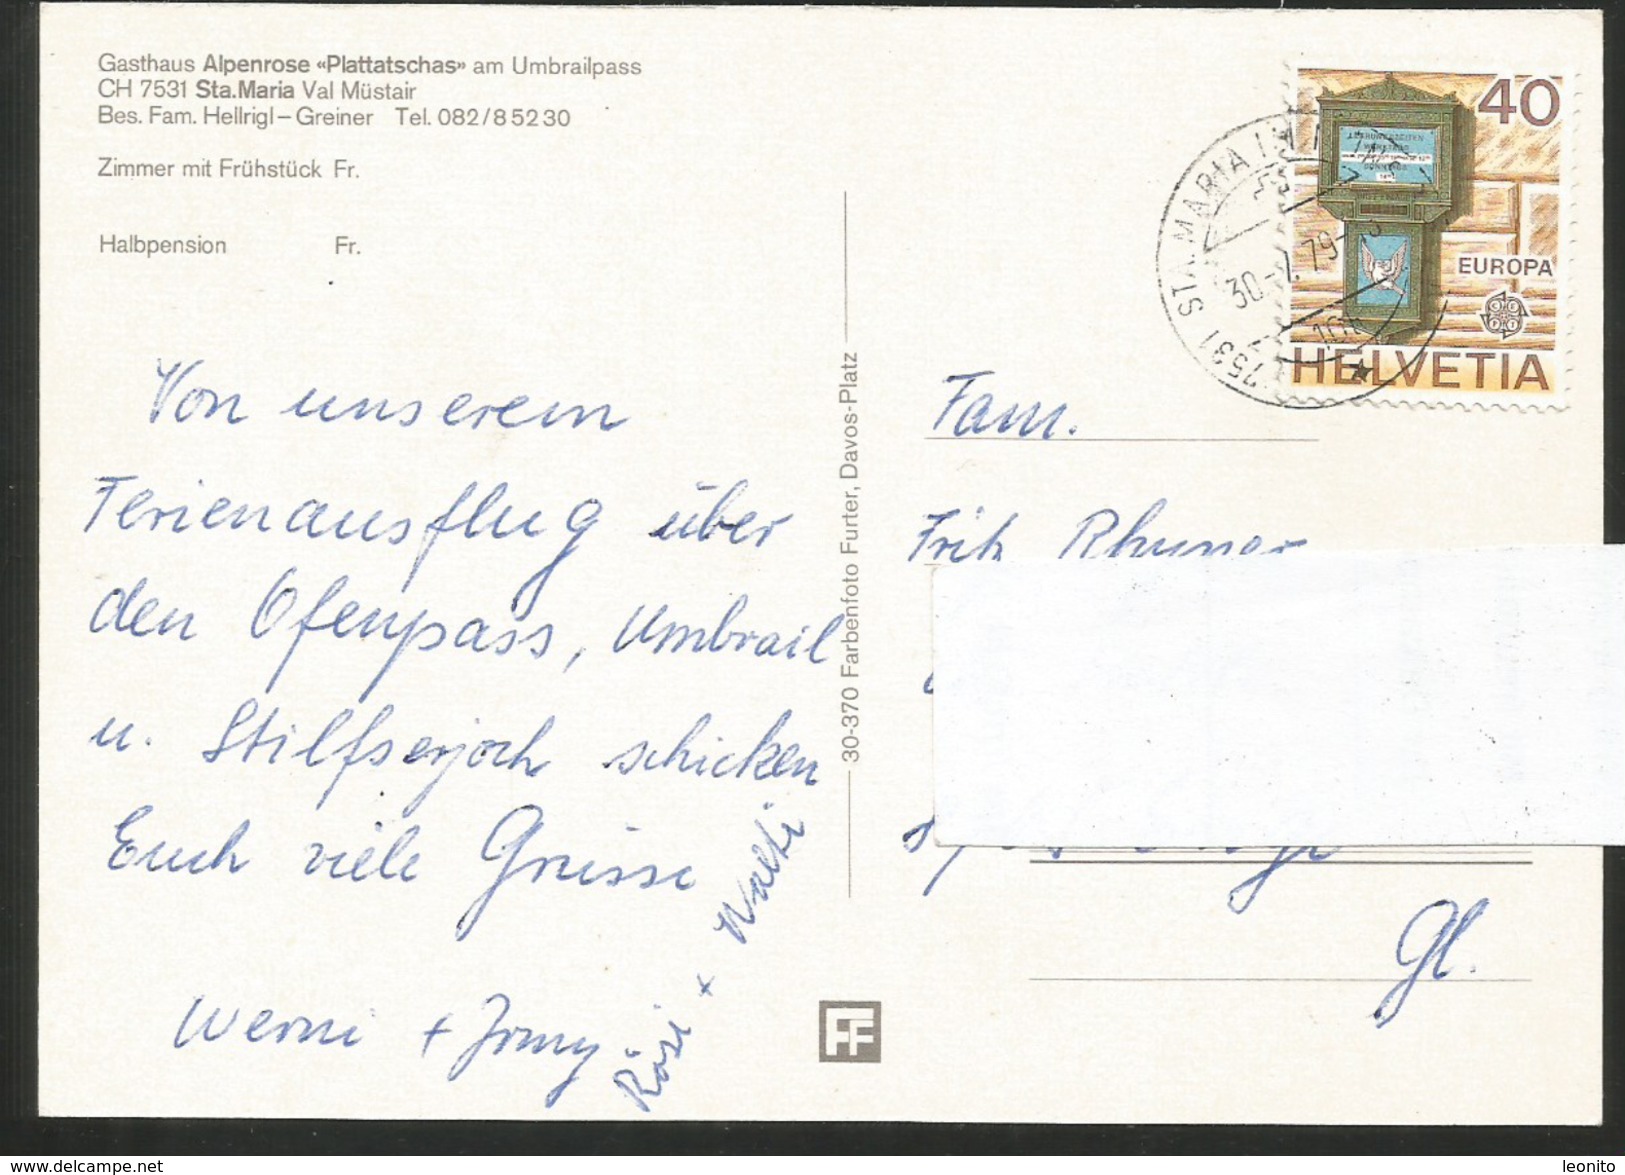 Gasthaus Alpenrose «Plattatschas» am Umbrailpass
CH 7531 Sta.Maria Val Müstair
Bes. Fam. Hellrigl – Greiner Tel. 082/8 52 30
Zimmer mit Frühstück Fr.
Halbpension Fr.
Von unserem
Ferienausflug über
den Ofenpass, Umbrail
u. Stilfserjoch schicken
Euch viele Grüsse
Werni +
Rösi + Walti
30-370 Farbenfoto Furter, Davos-Platz
FF
40
EUROPA
HELVETIA
7531 STA. MARIA
30
79
Fam.
Fritz Rhyner
Gl.
delcampe.net
leonito